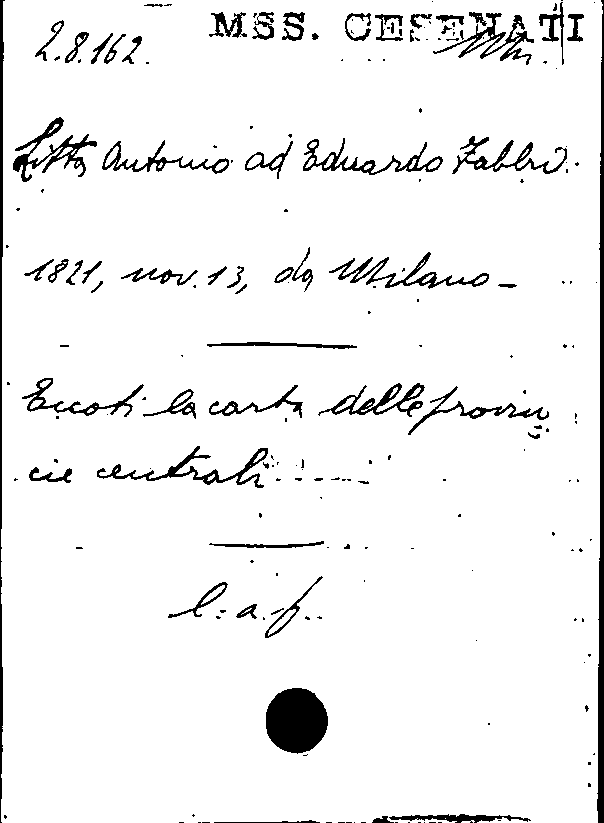 MSS. CESENATI
2.8.162.
Litta Antonio ad Eduardo Fabbri.
1821, nov. 13, da Milano -
Eccoti la carta delle provin
cie centrali ......
l. a. f.